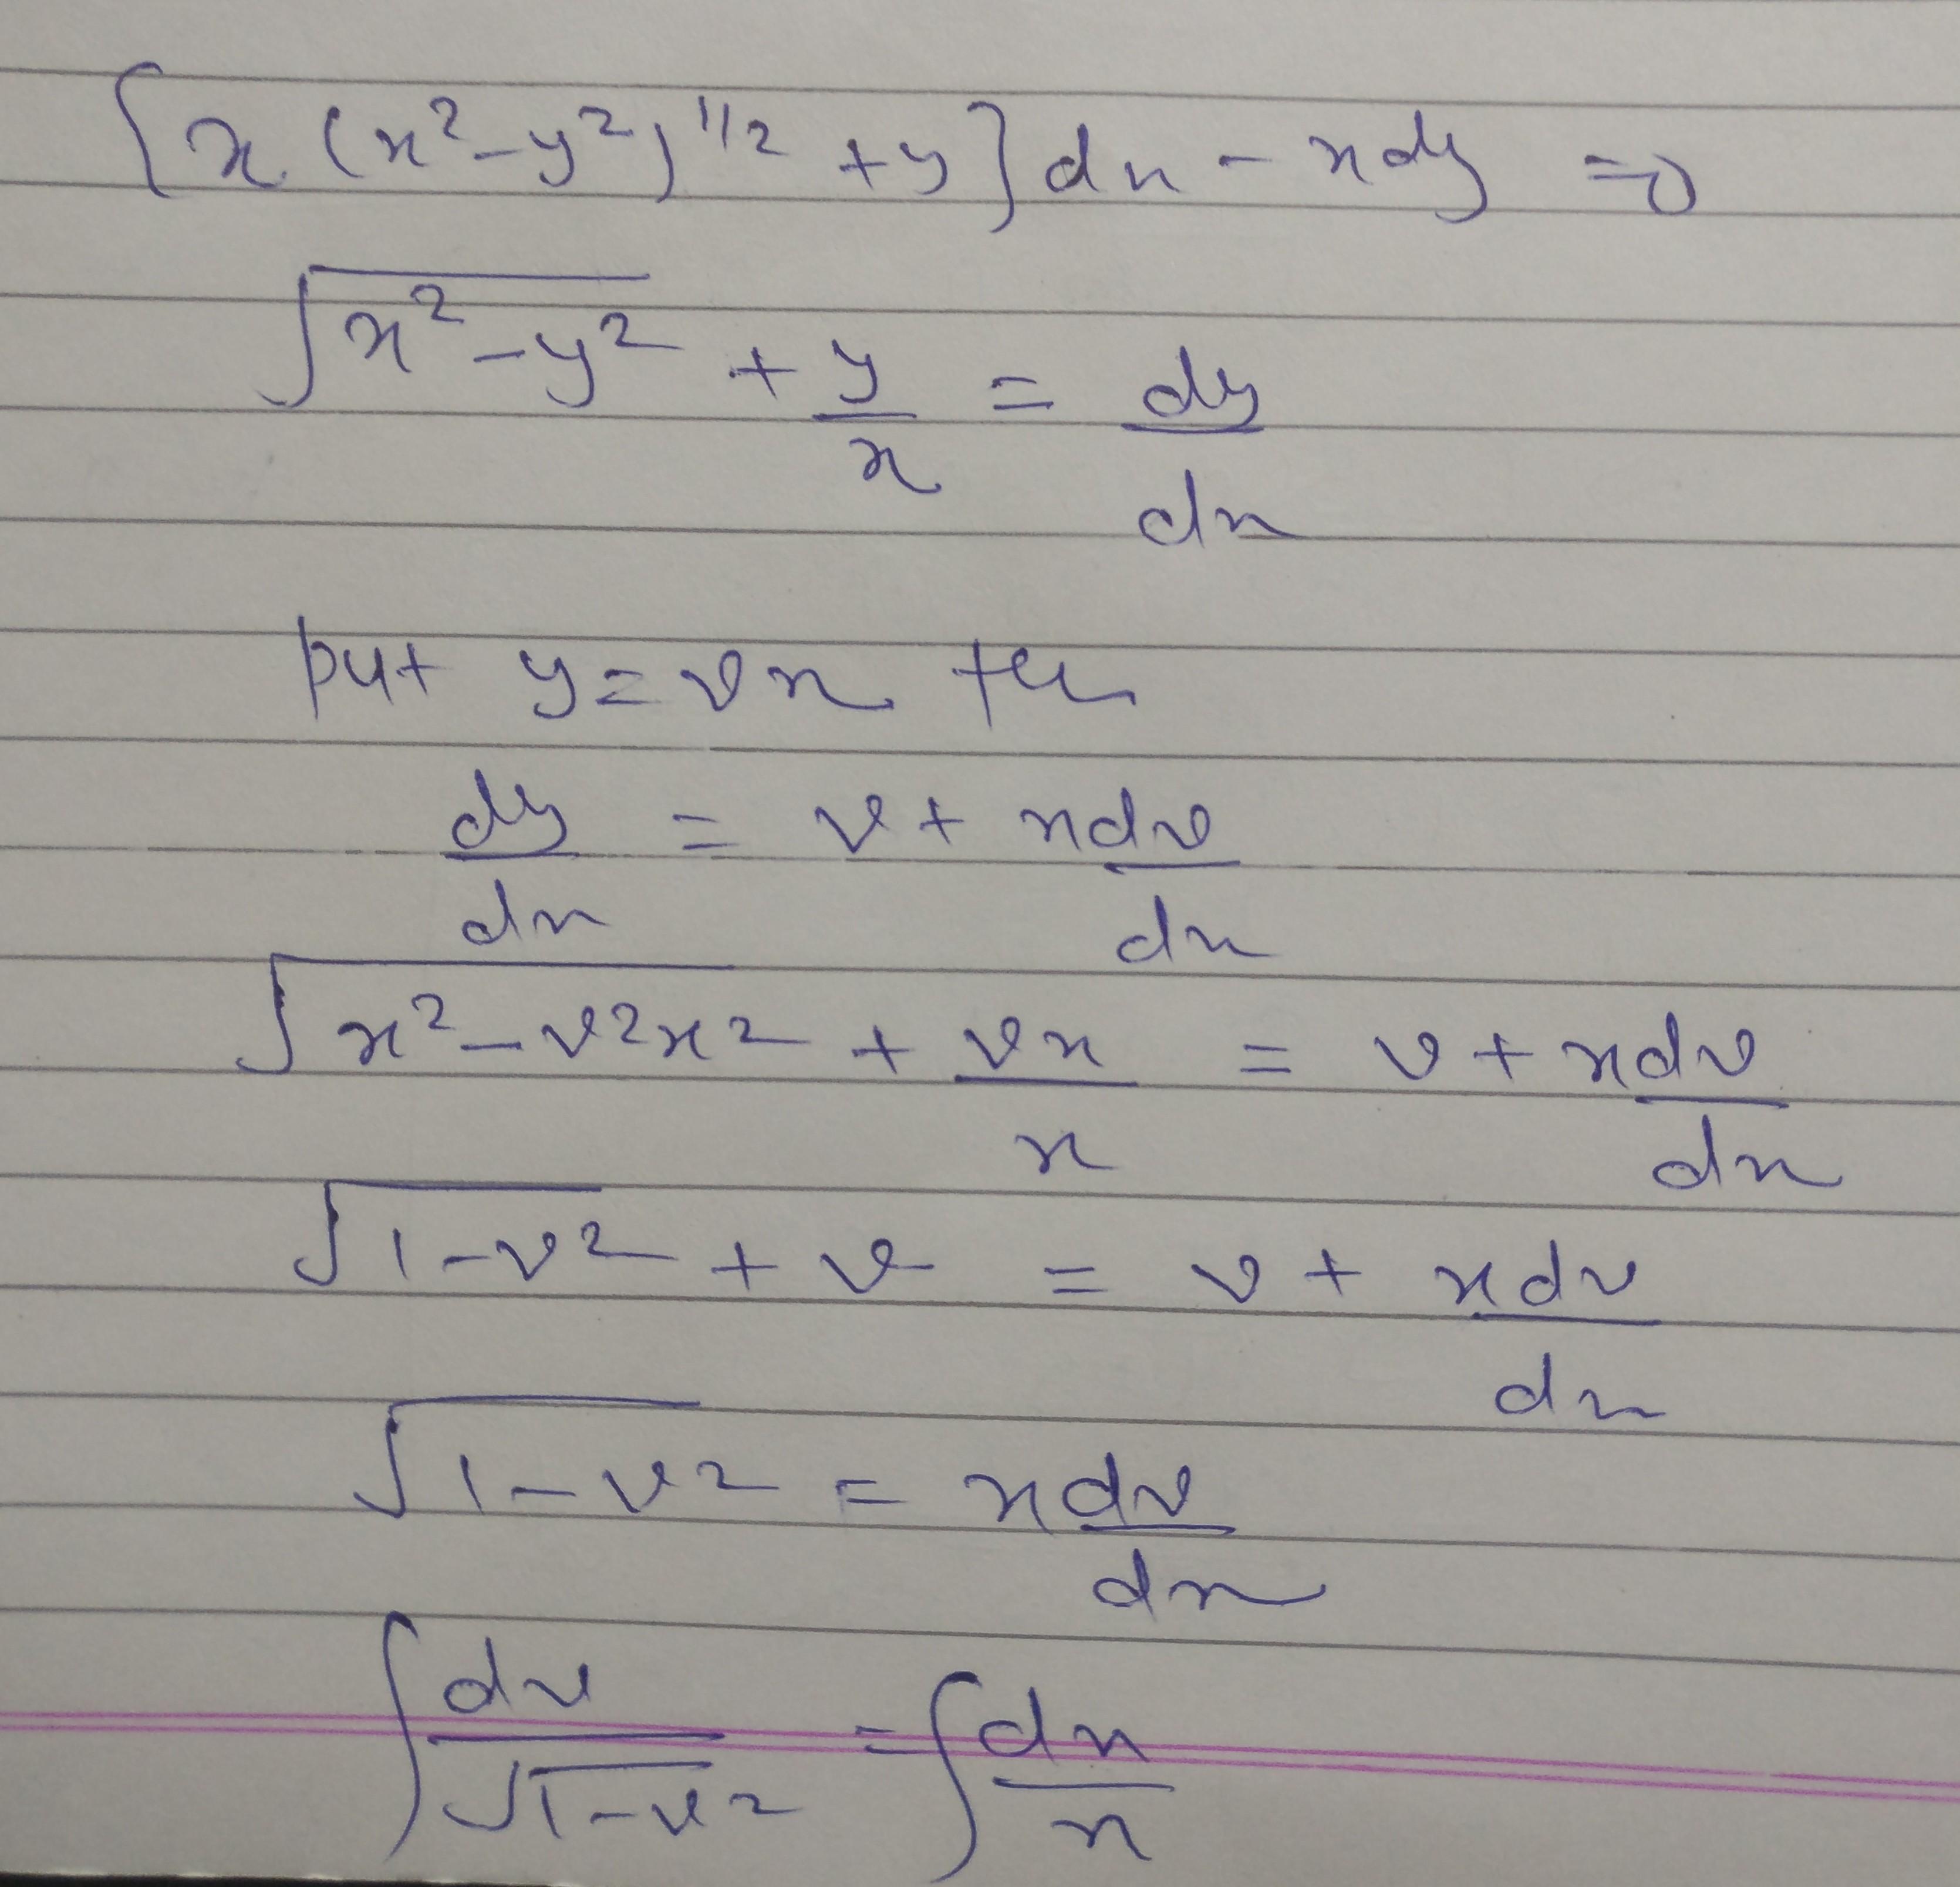 {x (x²-y²)^1/2 + y} dx - x dy = 0
√(x²-y²) + y/x = dy/dx
put y = vx
dy/dx = v + x dv/dx
√(x²-v²x²) + vx/x = v + x dv/dx
√(1-v²) + v = v + x dv/dx
√(1-v²) = x dv/dx
∫ dv/√(1-v²) = ∫ dx/x